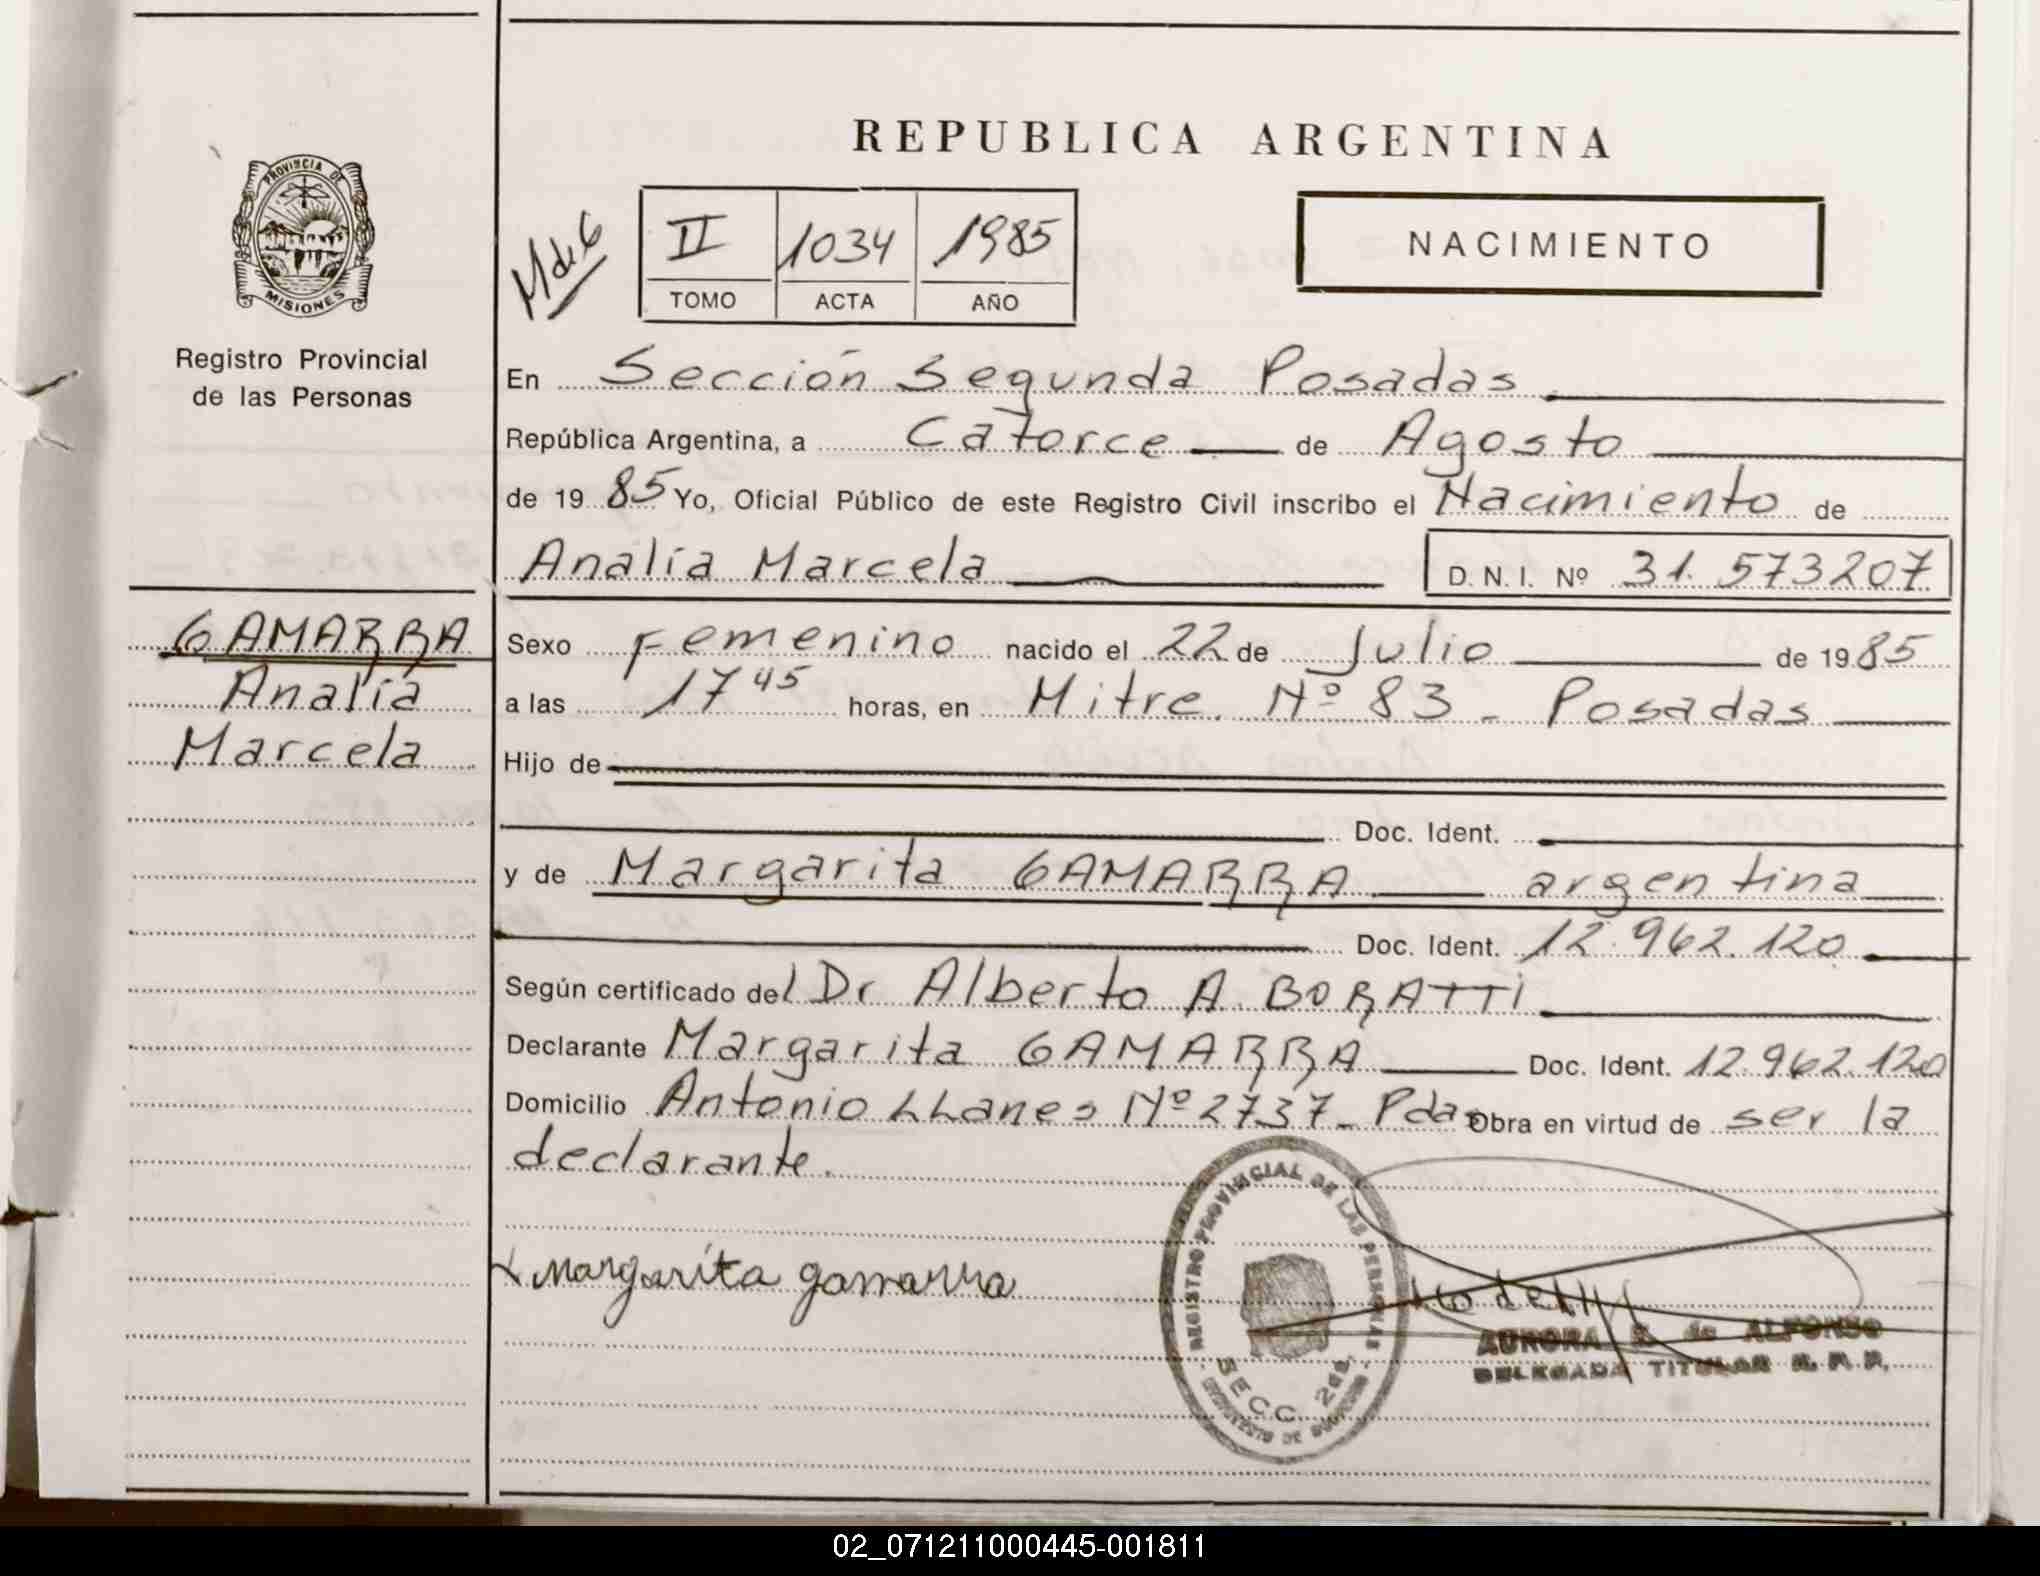 REPUBLICA ARGENTINA
PROVINCIA DE
MISIONES
Registro Provincial
de las Personas
M de G
II 1034 1985
TOMO ACTA AÑO
NACIMIENTO
En Sección Segunda Posadas
República Argentina, a Catorce de Agosto
de 19 85 Yo, Oficial Público de este Registro Civil inscribo el Nacimiento de
Analía Marcela D. N. I. Nº 31.573207
GAMARRA
Analía
Marcela
Sexo Femenino nacido el 22 de Julio de 19 85
a las 17 45 horas, en Mitre. Nº 83 - Posadas
Hijo de
Doc. Ident.
y de Margarita GAMARRA argentina
Doc. Ident. 12.962.120
Según certificado del Dr Alberto A. BORATTI
Declarante Margarita GAMARRA Doc. Ident. 12.962.120
Domicilio Antonio LLanes Nº 2737 - Pdas Obra en virtud de ser la
declarante.
Margarita gamarra
REGISTRO PROVINCIAL DE LAS PERSONAS
SECC. 2da.
AURORA de ALFONSO
DELEGADA TITULAR R. P. P.
02_071211000445-001811